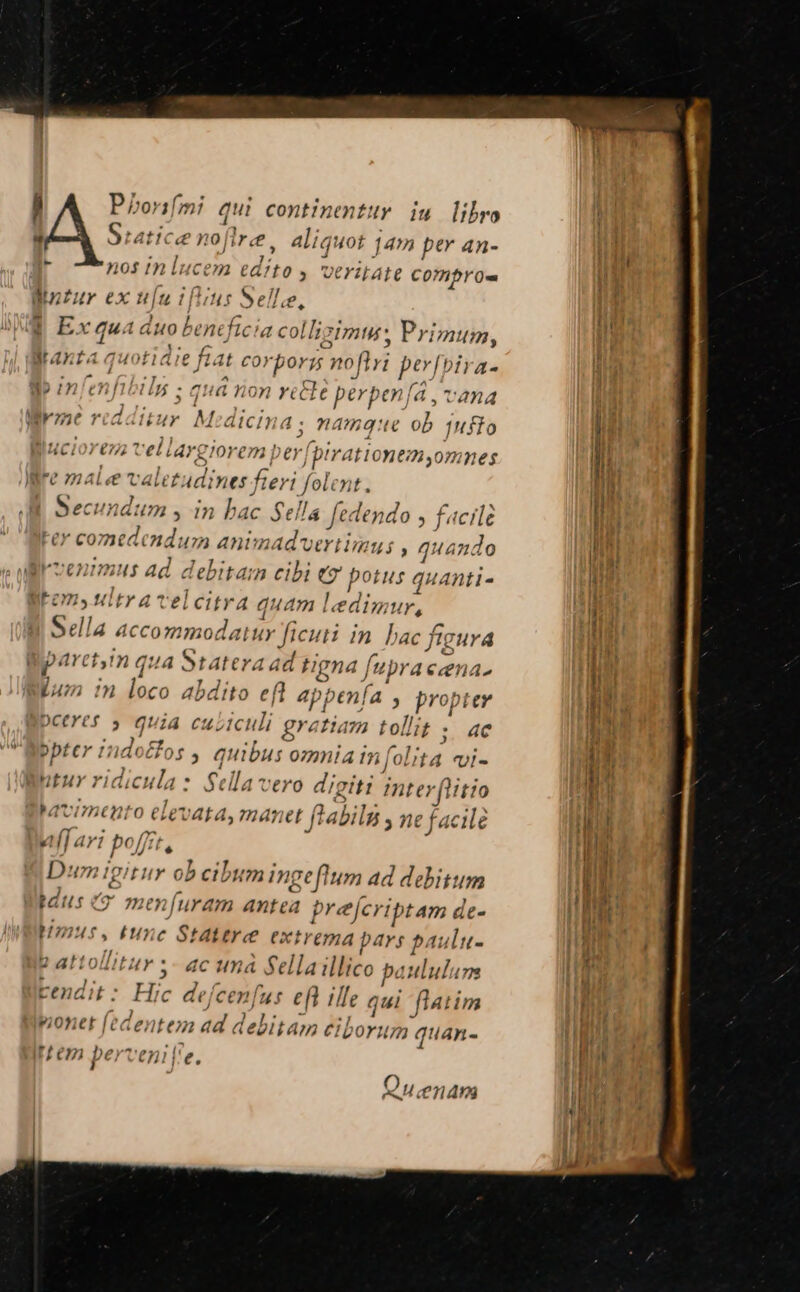 A Phorismi qui continentur in libro
Staticæ nostræ, aliquot jam per an-
nos in lucem edito, veritate compro-
ntur ex usu istius Sellæ.
Ex qua duo beneficia colligimus; Primum,
quotidie fiat corporis nostri perspira-
insensibilis; quâ non rectè perpensâ, vana
redditur Medicina; namque ob justo
vel largiorem perspirationem, omnes
malæ valetudines fieri solent.
Secundum, in hac Sella sedendo, facilè
comedendum animadvertimus, quando
ad debitam cibi & potus quanti-
ultra vel citra quam lædimur,
Sella accommodatur sicuti in hac figura
in qua Statera ad tigna supra cæna-
in loco abdito est appensa, propter
quia cubiculi gratiam tollit; ac
indoctos, quibus omnia insolita vi-
ridicula: Sella vero digiti interstitio
elevata, manet stabilis, ne facilè
possit,
Dum igitur ob cibum ingestum ad debitum
& mensuram antea præscriptam de-
tunc Stateræ extrema pars paulu-
attollitur; ac unà Sella illico paululum
Hic descensus est ille qui statim
sedentem ad debitam ciborum quan-
pervenisse.
Quænam